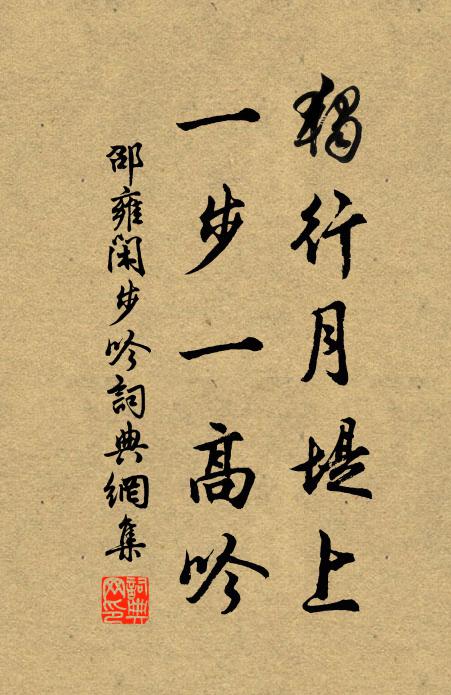 獨行月堤上
一步一高吟
邵雍閑步吟詞典網集
詞典
网印